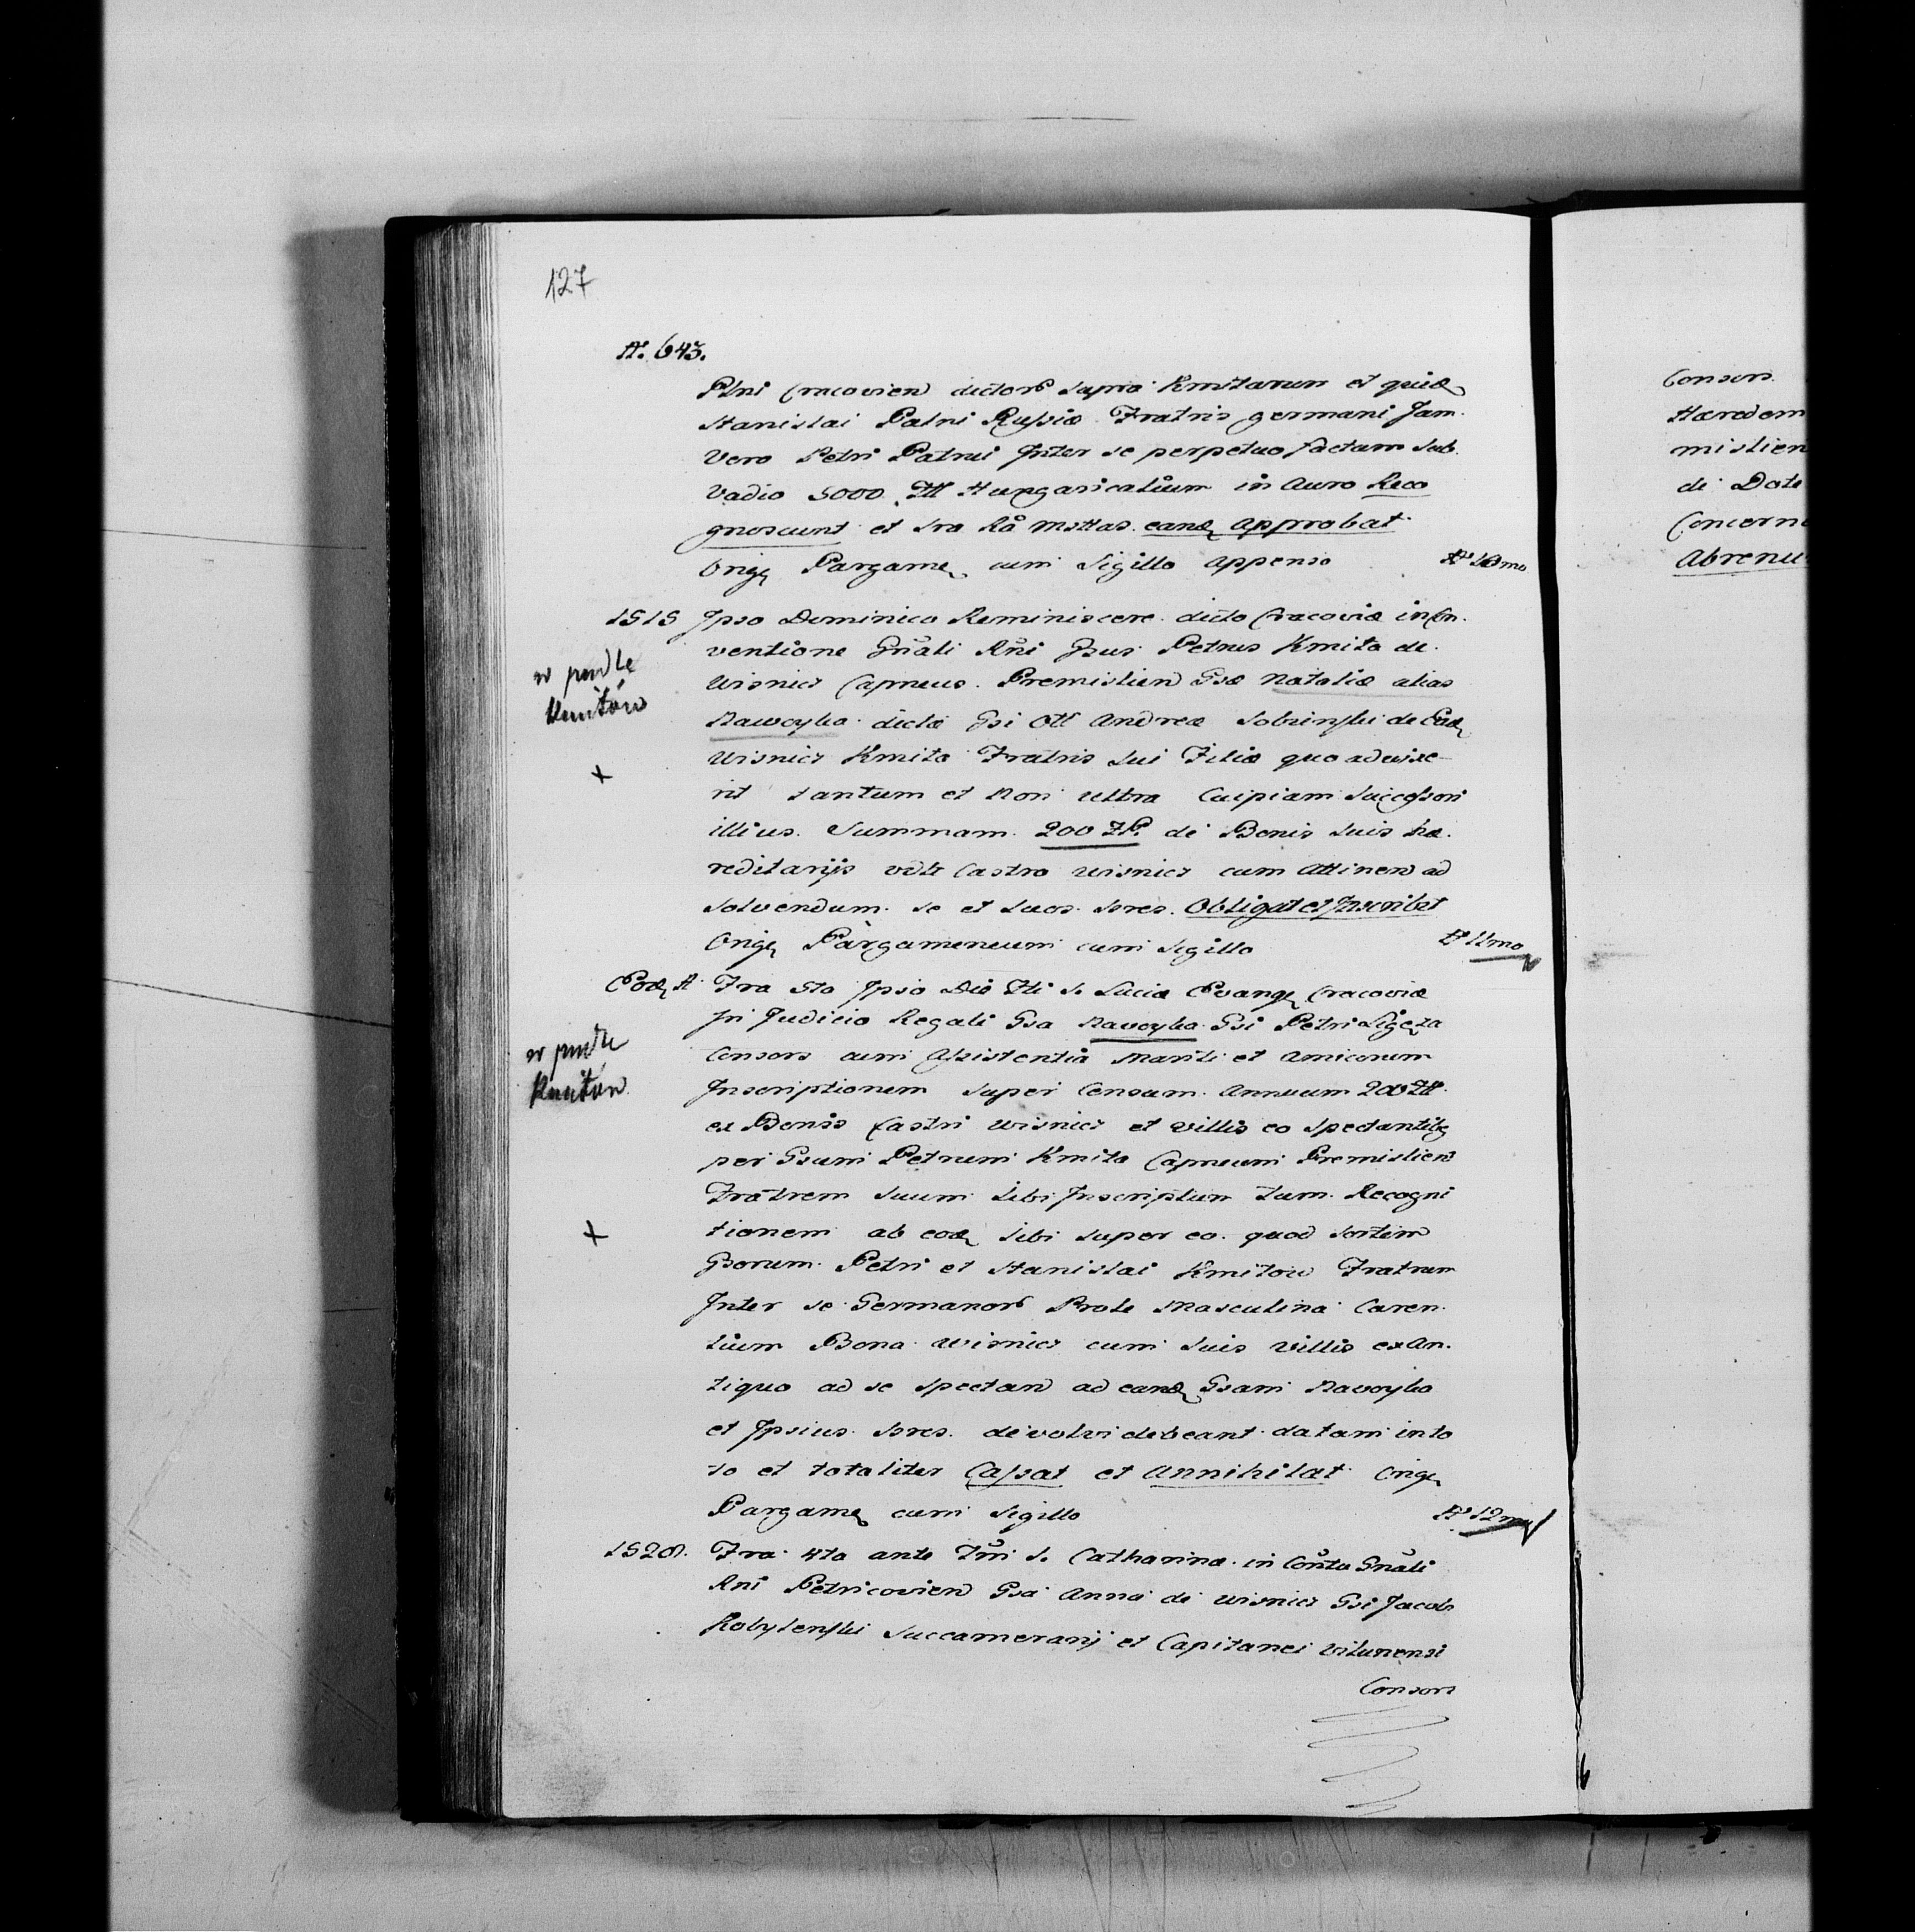 127
N. 643.
Plni Cracovien dictorb supra Kmitarum et quid
Stanislai Palni Russiæ Fratris germani Jam
Vero Petri Patrui Inter se perpetuo factum sub
Vadio 5000 Ztt Hungaricalium in Auro Reco
gnoscunt et Sra Ra Msttas eand approbat
Orig Pargame cum Sigillo appenso Nº 10mo
1515 Ipso Dominico Reminiscere dicto Cracoviæ in Con
ventione Gñali Rñi Gsus Petrus Kmita de
Wisnicz Capneus Premislien Gsæ Nataliæ alias
Nawoyka dictæ Gsi Ott Andreæ Sobinski de Ead
Wisnicz Kmita Fratris sui Filiæ quo advixe
rit tantum et non ultra Cuipiam Successori
illius Summam 200 ZP. de Bonis suis hæ
reditarijs vdlt Castro Wisnicz cum Attinen ad
solvendum se et suos sres. Obligat et Inscribit
Orig Pargameneum cum Sigillo Nº 11mo
w pudle
Kmitów
+
Eod A. Fra 5ta Ipso Die Fti S. Luciæ Evang Cracoviæ
In Judicio Regali Gsa Nawoyka Gsi Petri Ligęza
Consors cum Assistentia Mariti et Amicorum
Inscriptionem super Censum Annuum 200 Ztt
ex Bonis Castri Wisnicz et villis eo spectantib
per Gsum Petrum Kmita Capneum Premislien
Fratrem Suum Sibi Inscriptum tum Recogni
tionem ab eod sibi super eo quod sortem
Gsorum Petri et Stanislai Kmitow Fratrum
Inter se Germanorb Prole Masculina Caren
tium Bona Wisnicz cum suis Villis ex An
tiquo ad se spectan ad eand Gsam Nawoyka
et Ipsius sres. devolvi debeant datam in to
to et totaliter Cassat et Annihilat Orig
Pargame cum Sigillo Nº 12mo
w pudle
Kmitów
+
1528. Fra 4ta ante Fm S. Catharinæ in Contu Gnali
Rni Petricovien Gsa Anna de Wisnicz Gsi Jacob
Kobylenski Succamerarij et Capitanei Vilunensi
Consors
Consors
Hæredem
mislien
de Dote
Concerne
Abrenu